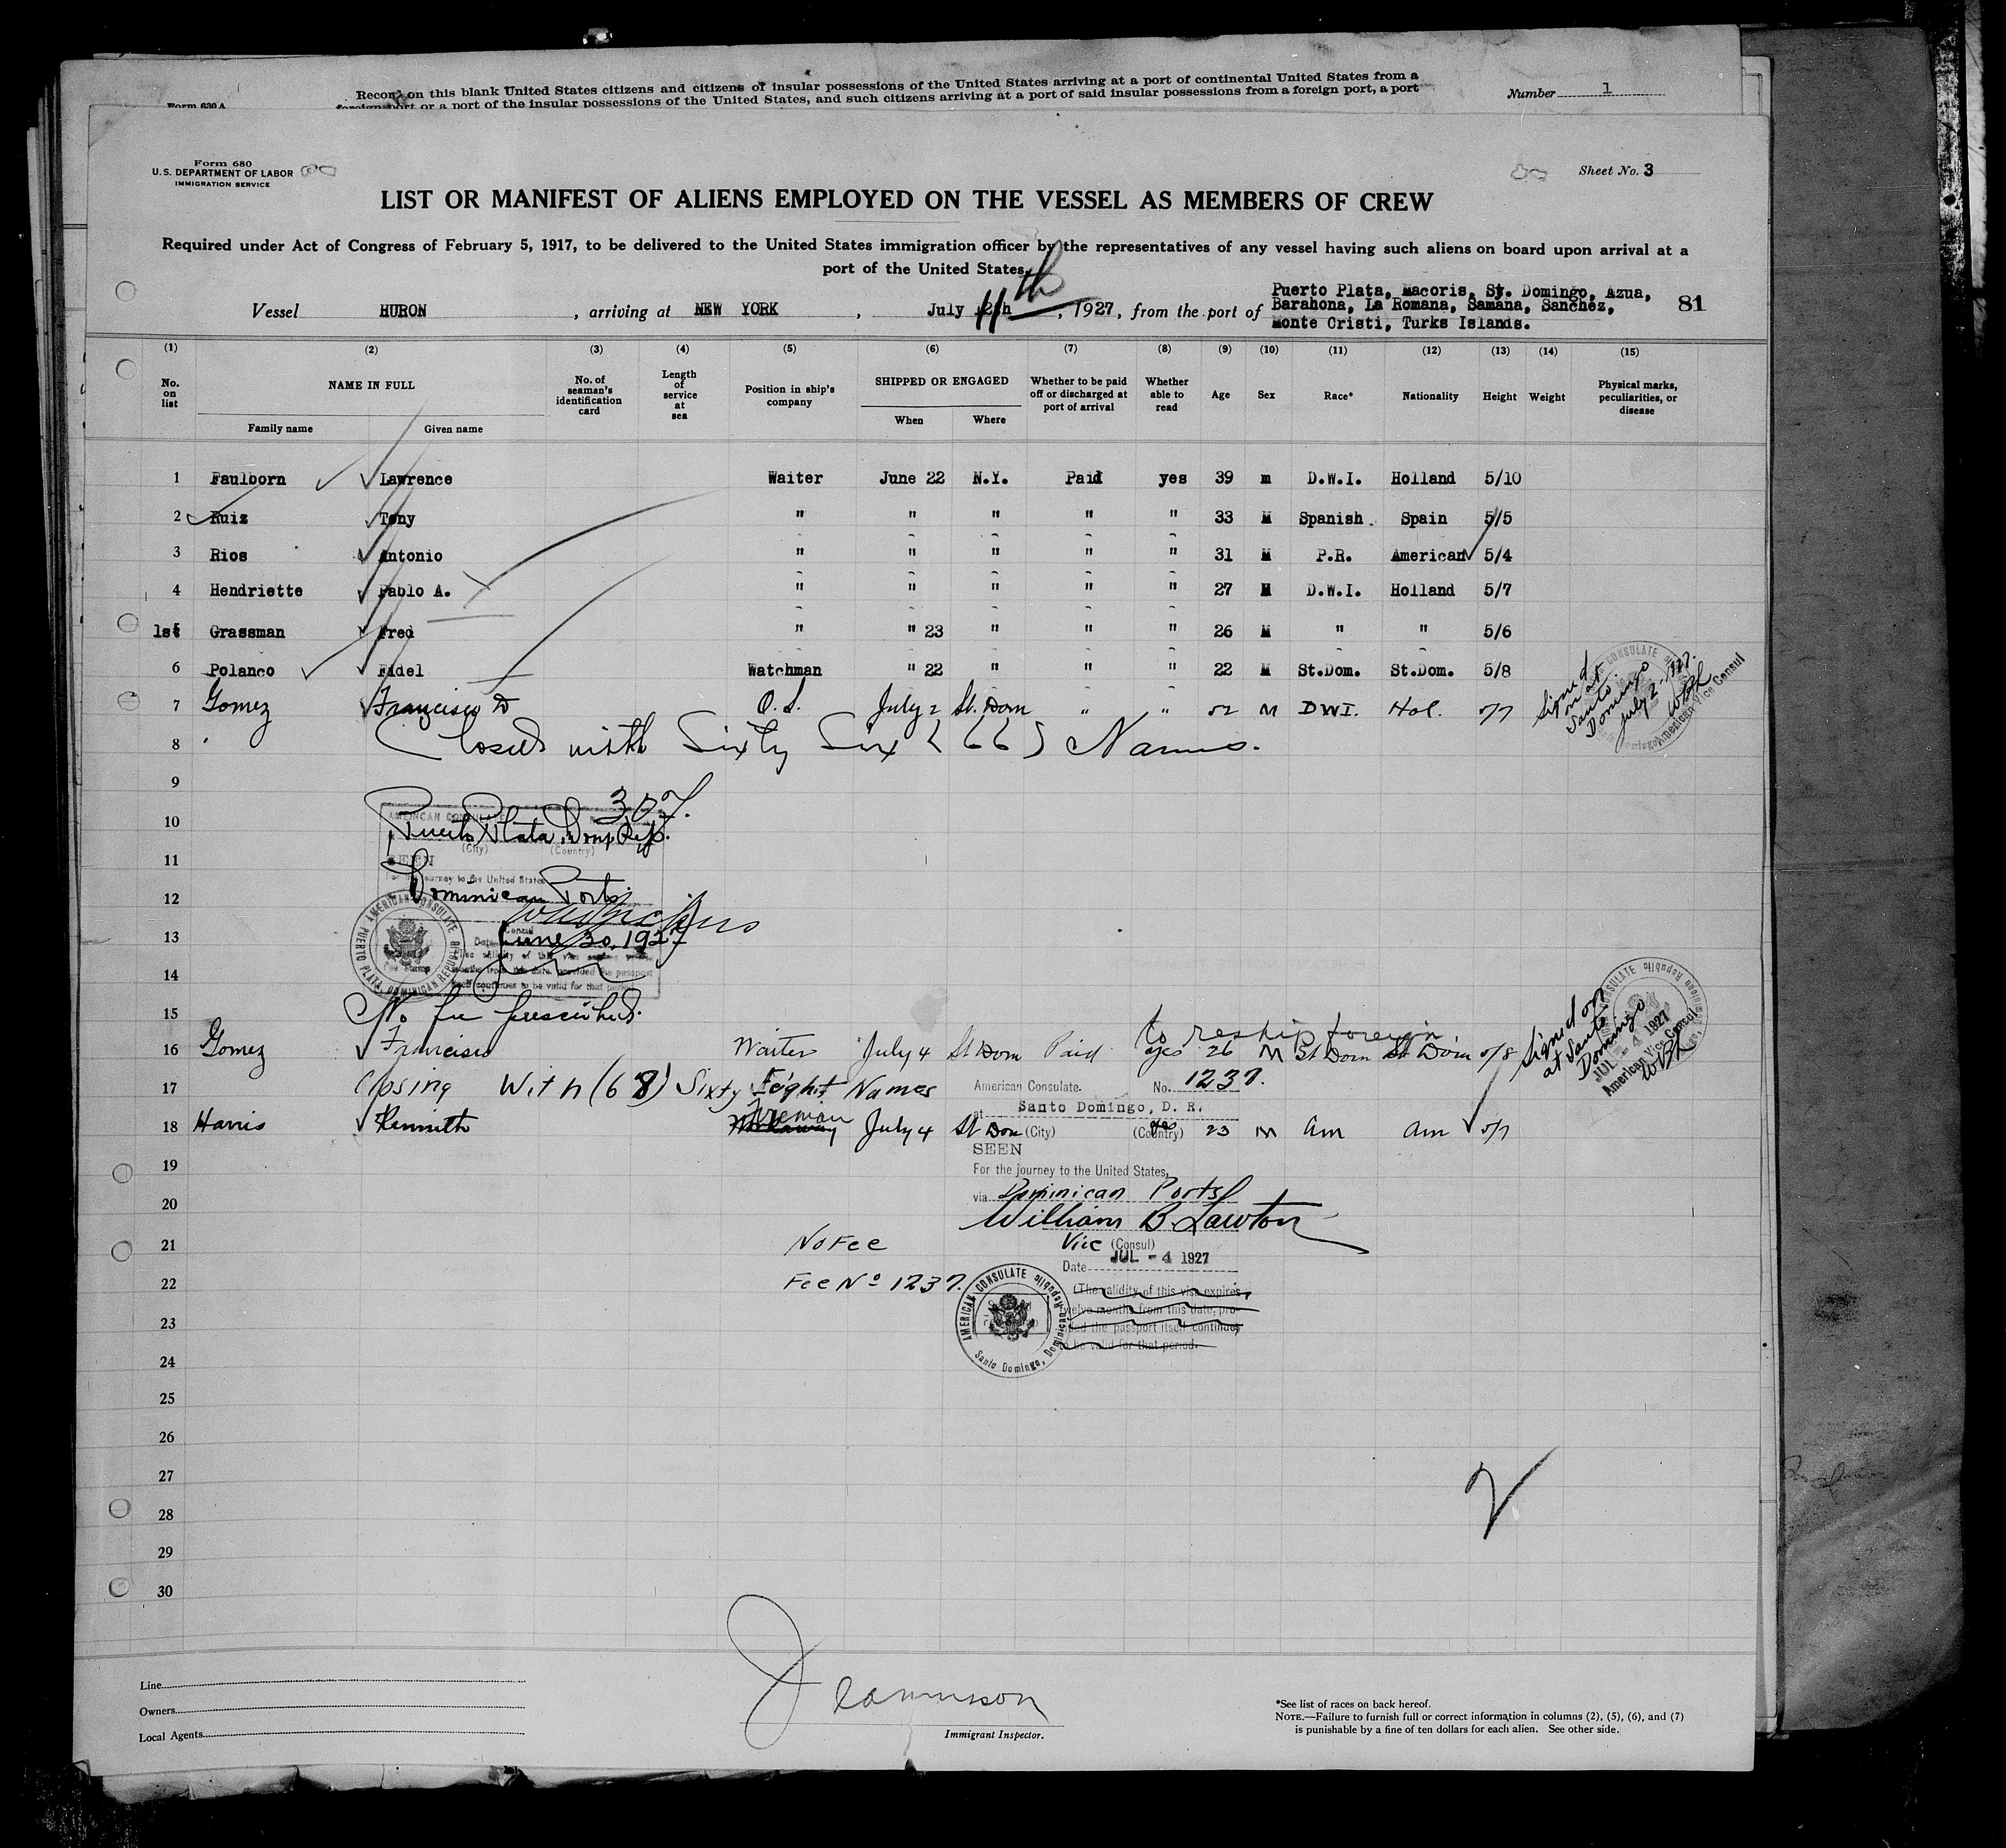 Record on this blank United States citizens and citizens of insular possessions of the United States arriving at a port of continental United States from a
Form 630 A
foreign port or a port of the insular possessions of the United States, and such citizens arriving at a port of said insular possessions from a foreign port, a port
Number 1
Form 680
U.S. DEPARTMENT OF LABOR
IMMIGRATION SERVICE
Sheet No. 3
LIST OR MANIFEST OF ALIENS EMPLOYED ON THE VESSEL AS MEMBERS OF CREW
Required under Act of Congress of February 5, 1917, to be delivered to the United States immigration officer by the representatives of any vessel having such aliens on board upon arrival at a
port of the United States.
Vessel HURON, arriving at NEW YORK, July 11th, 1927, from the port of Puerto Plata, Macoris, St. Domingo, Azua,
Barahona, La Romana, Samana, Sanchez,
Monte Cristi, Turks Islands.
81
(1) (2) (3) (4) (5) (6) (7) (8) (9) (10) (11) (12) (13) (14) (15)
No. on list NAME IN FULL No. of seaman's identification card Length of service at sea Position in ship's company SHIPPED OR ENGAGED Whether to be paid off or discharged at port of arrival Whether able to read Age Sex Race* Nationality Height Weight Physical marks, peculiarities, or disease
Family name Given name When Where
1 Faulborn Lawrence Waiter June 22 N.Y. Paid yes 39 m D.W.I. Holland 5/10
2 Ruiz Tony " " " " " 33 M Spanish Spain 5/5
3 Rios Antonio " " " " " 31 M P.R. American 5/4
4 Hendriette Pablo A. " " " " " 27 M D.W.I. Holland 5/7
1st 5 Grassman Fred " " 23 " " " 26 M " " 5/6
6 Polanco Fidel Watchman " 22 " " " 22 M St.Dom. St.Dom. 5/8
7 Gomez Francisco D O.S. July 2 St. Dom " " 52 M DWI. Hol. 5/7
Signed on at Santo Domingo July 2-1927. WBL
American Vice Consul
8 Closed with Sixty Six (66) Names.
9
307.
10 AMERICAN CONSULATE
Puerto Plata, Dom. Rep.
(City) (Country)
11 SEEN
For the journey to the United States
Dominican Ports
12
13 Consul
Date June 30, 1927
The validity of this visa expires
14 months from this date provided the passport
itself continues to be valid for that period
AMERICAN CONSULATE PUERTO PLATA, DOMINICAN REPUBLIC
15 No fee prescribed.
to reship foreign
16 Gomez Francisco Waiter July 4 St Dom Paid yes 26 M St Dom St Dom 5/8
Signed on at Santo Domingo
JUL - 4 1927
American Vice Consul
WBL
17 Closing With (68) Sixty Eight Names
American Consulate. No. 1237.
at Santo Domingo, D. R.
18 Harris Kennith Fireman July 4 St Dom yes 23 M am am 5/7
(City) (Country)
SEEN
19 For the journey to the United States,
via Dominican Ports
20 William B. Lawton
21 No Fee Vice (Consul)
Date JUL - 4 1927
22 Fee No 1237.
(The validity of this visa expires
twelve months from this date, pro-
23 vided the passport itself continues
to be valid for that period.
AMERICAN CONSULATE Santo Domingo, Dominican Republic
24
25
26
27
28
29
30
Line
Owners
Local Agents
Immigrant Inspector.
*See list of races on back hereof.
NOTE.—Failure to furnish full or correct information in columns (2), (5), (6), and (7)
is punishable by a fine of ten dollars for each alien. See other side.